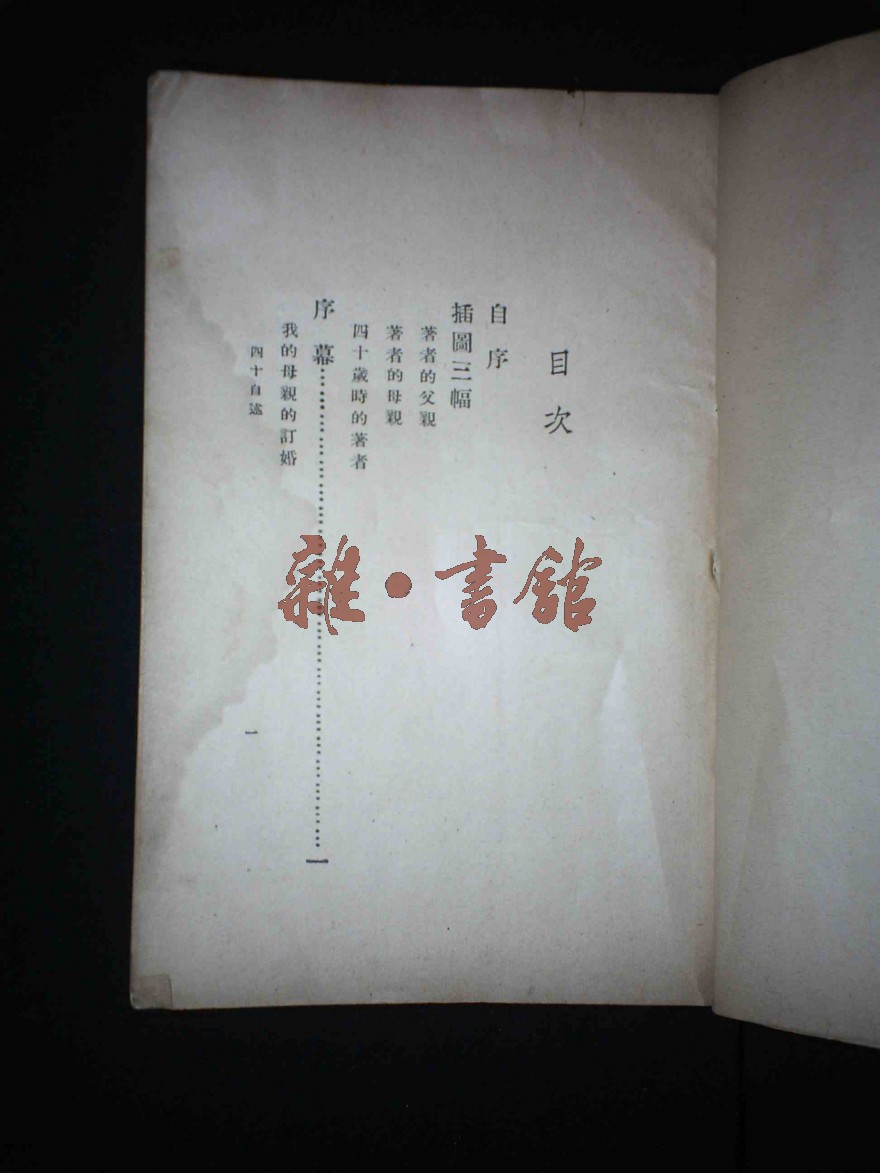 目次
自序
插圖三幅
著者的父親
著者的母親
四十歲時的著者
序幕……一
我的母親的訂婚
四十自述
一
雜·書館